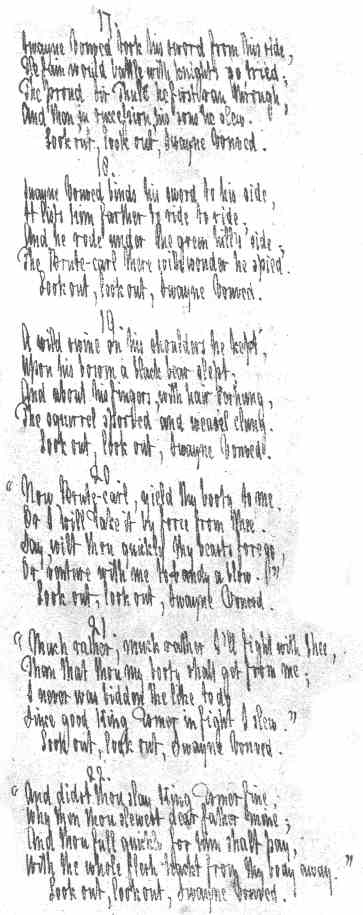 17.
Swayne Vonved took his sword from his side,
He fain would battle with knights so tried;
The proud Sir Thule he first ran through,
And then in succession his sons he slew.
Look out, look out, Swayne Vonved.
18.
Swayne Vonved binds his sword to his side,
It lists him farther to ride to ride.
And he rode under the green hill's side;
The Brute-carl there with wonder he spied.
Look out, look out, Swayne Vonved.
19.
A wild swine on his shoulders he kept,
Upon his bosom a black bear slept;
And about his fingers, with hair o'erhung,
The squirrel sported and weasel clung.
Look out, look out, Swayne Vonved.
20
“Now Brute-carl, yield thy booty to me.
Or I will take it by force from thee.
Say, wilt thou quickly thy beasts forego,
Or venture with me to bandy a blow.”
Look out, look out, Swayne Vonved.
21
“Much rather, much rather I'll fight with thee,
Than that thou my booty shalt get from me;
I never was bidden the like to do
Since good King Esmer in fight I slew.”
Look out, look out, Swayne Vonved.
22.
“And didst thou slay King Esmer fine;
Why then thou slewest dear father mine;
And thou full quickly for him shalt pay,
With the whole flesh hackt from thy body away.”
Look out, look out, Swayne Vonved.